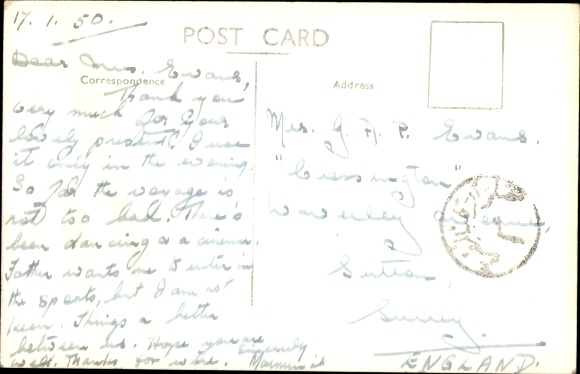 17.1.50.
POST CARD
Correspondence
Dear Mrs. Evans,
Thank you
very much for your
lovely present. I use
it only in the evening.
So far the voyage is
not too bad. There's
been dancing & a cinema.
Father wants me to enter in
the sports, but I am not
keen. Things a better
between us. Hope you are
well. Thanks for wire.
Sincerely
Address
Mrs. G. A. P. Evans.
"Cressington"
Waverley Avenue,
Sutton
Surrey.
ENGLAND.